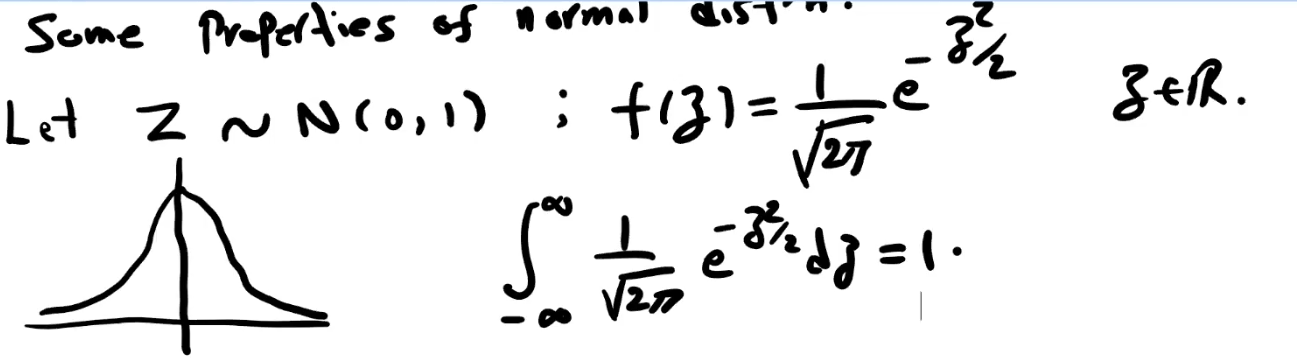 Some Properties of normal
Let Z ~ N(0,1) ; f(z) = 1/√2π e^-z²/2 z ∈ ℝ.
∫_-∞^∞ 1/√2π e^-z²/2 dz = 1.